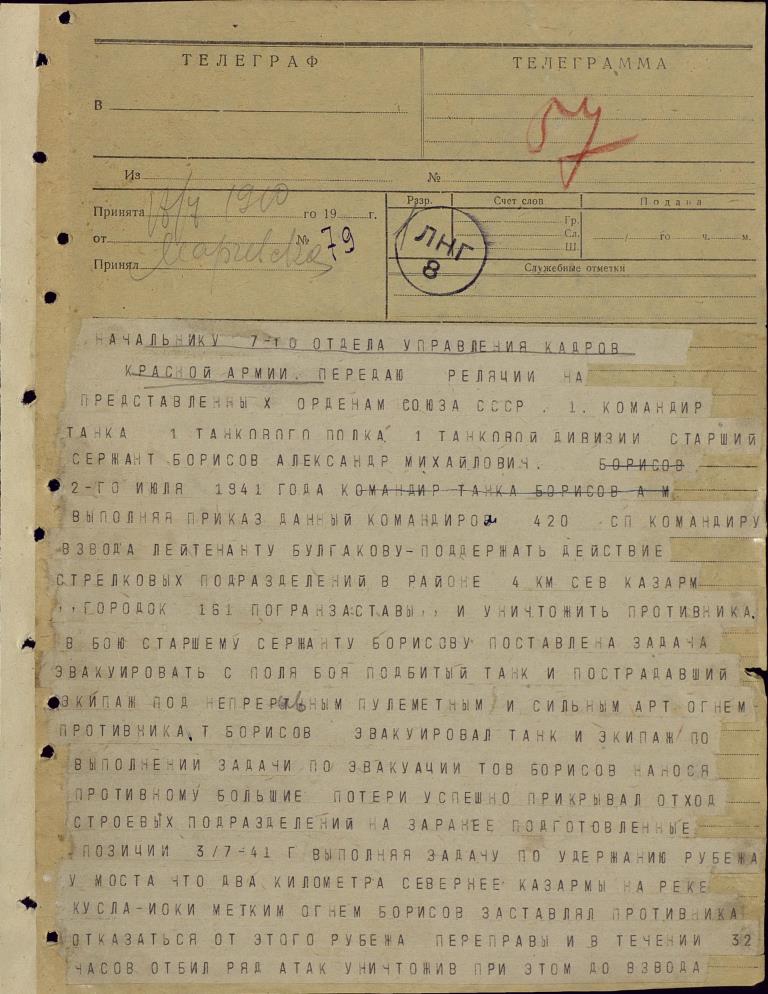 ТЕЛЕГРАФ
ТЕЛЕГРАММА
В
57
Из №
Принята 17/7 1900 го 19 г.
от № 79
Принял
Разр. Счет слов Подана
Гр.
Сл. го ч. м.
Ш.
ЛНГ
8
Служебные отметки
НАЧАЛЬНИКУ 7-ГО ОТДЕЛА УПРАВЛЕНИЯ КАДРОВ
КРАСНОЙ АРМИИ. ПЕРЕДАЮ РЕЛЯЦИИ НА
ПРЕДСТАВЛЕННЫ Х ОРДЕНАМ СОЮЗА СССР . 1. КОМАНДИР
ТАНКА 1 ТАНКОВОГО ПОЛКА 1 ТАНКОВОЙ ДИВИЗИИ СТАРШИЙ
СЕРЖАНТ БОРИСОВ АЛЕКСАНДР МИХАЙЛОВИЧ. БОРИСОВ
2-ГО ИЮЛЯ 1941 ГОДА КОМАНДИР ТАНКА БОРИСОВ А М
ВЫПОЛНЯЯ ПРИКАЗ ДАННЫЙ КОМАНДИРОМ 420 СП КОМАНДИРУ
ВЗВОДА ЛЕЙТЕНАНТУ БУЛГАКОВУ-ПОДДЕРЖАТЬ ДЕЙСТВИЕ
СТРЕЛКОВЫХ ПОДРАЗДЕЛЕНИЙ В РАЙОНЕ 4 КМ СЕВ КАЗАРМ
,,ГОРОДОК 161 ПОГРАНЗАСТАВЫ,, И УНИЧТОЖИТЬ ПРОТИВНИКА.
В БОЮ СТАРШЕМУ СЕРЖАНТУ БОРИСОВУ ПОСТАВЛЕНА ЗАДАЧА
ЭВАКУИРОВАТЬ С ПОЛЯ БОЯ ПОДБИТЫЙ ТАНК И ПОСТРАДАВШИЙ
ЭКИПАЖ ПОД НЕПРЕРЫВНЫМ ПУЛЕМЕТНЫМ И СИЛЬНЫМ АРТ ОГНЕМ
ПРОТИВНИКА, Т БОРИСОВ ЭВАКУИРОВАЛ ТАНК И ЭКИПАЖ ПО
ВЫПОЛНЕНИИ ЗАДАЧИ ПО ЭВАКУАЧИИ ТОВ БОРИСОВ НАНОСЯ
ПРОТИВНОМУ БОЛЬШИЕ ПОТЕРИ УСПЕШНО ПРИКРЫВАЛ ОТХОД
СТРОЕВЫХ ПОДРАЗДЕЛЕНИЙ НА ЗАРАНЕЕ ПОДГОТОВЛЕННЫЕ
ПОЗИЦИИ 3/7-41 Г ВЫПОЛНЯЯ ЗАДАЧУ ПО УДЕРЖАНИЮ РУБЕЖА
У МОСТА ЧТО ДВА КИЛОМЕТРА СЕВЕРНЕЕ КАЗАРМЫ НА РЕКЕ
КУСЛА-ИОКИ МЕТКИМ ОГНЕМ БОРИСОВ ЗАСТАВЛЯЛ ПРОТИВНИКА
ОТКАЗАТЬСЯ ОТ ЭТОГО РУБЕЖА ПЕРЕПРАВЫ И В ТЕЧЕНИИ 32
ЧАСОВ ОТБИЛ РЯД АТАК УНИЧТОЖИВ ПРИ ЭТОМ ДО ВЗВОДА